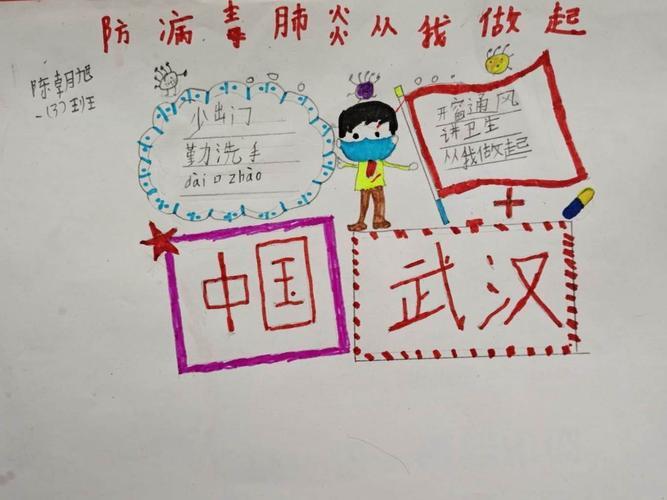 防病毒肺炎从我做起
陈朝旭
一(3)班
少出门
勤洗手
dài口zhào
开窗通风
讲卫生
从我做起
中国
武汉